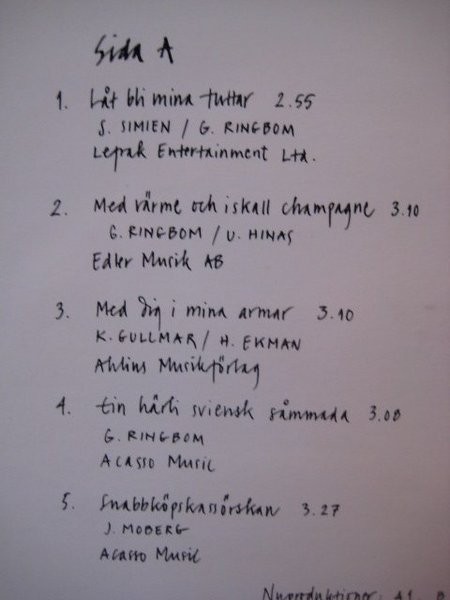 Sida A
1. Låt bli mina tuttar 2.55
S. SIMIEN / G. RINGBOM
Lepak Entertainment Ltd.
2. Med värme och iskall champagne 3.10
G. RINGBOM / U. HINAS
Edler Musik AB
3. Med dig i mina armar 3.10
K. GULLMAR / H. EKMAN
Ahlins Musikförlag
4. tin härli sviensk såmmada 3.08
G. RINGBOM
Acasso Music
5. Snabbköpskassörskan 3.27
J. MOBERG
Acasso Music
Nyproduktioner: A1,